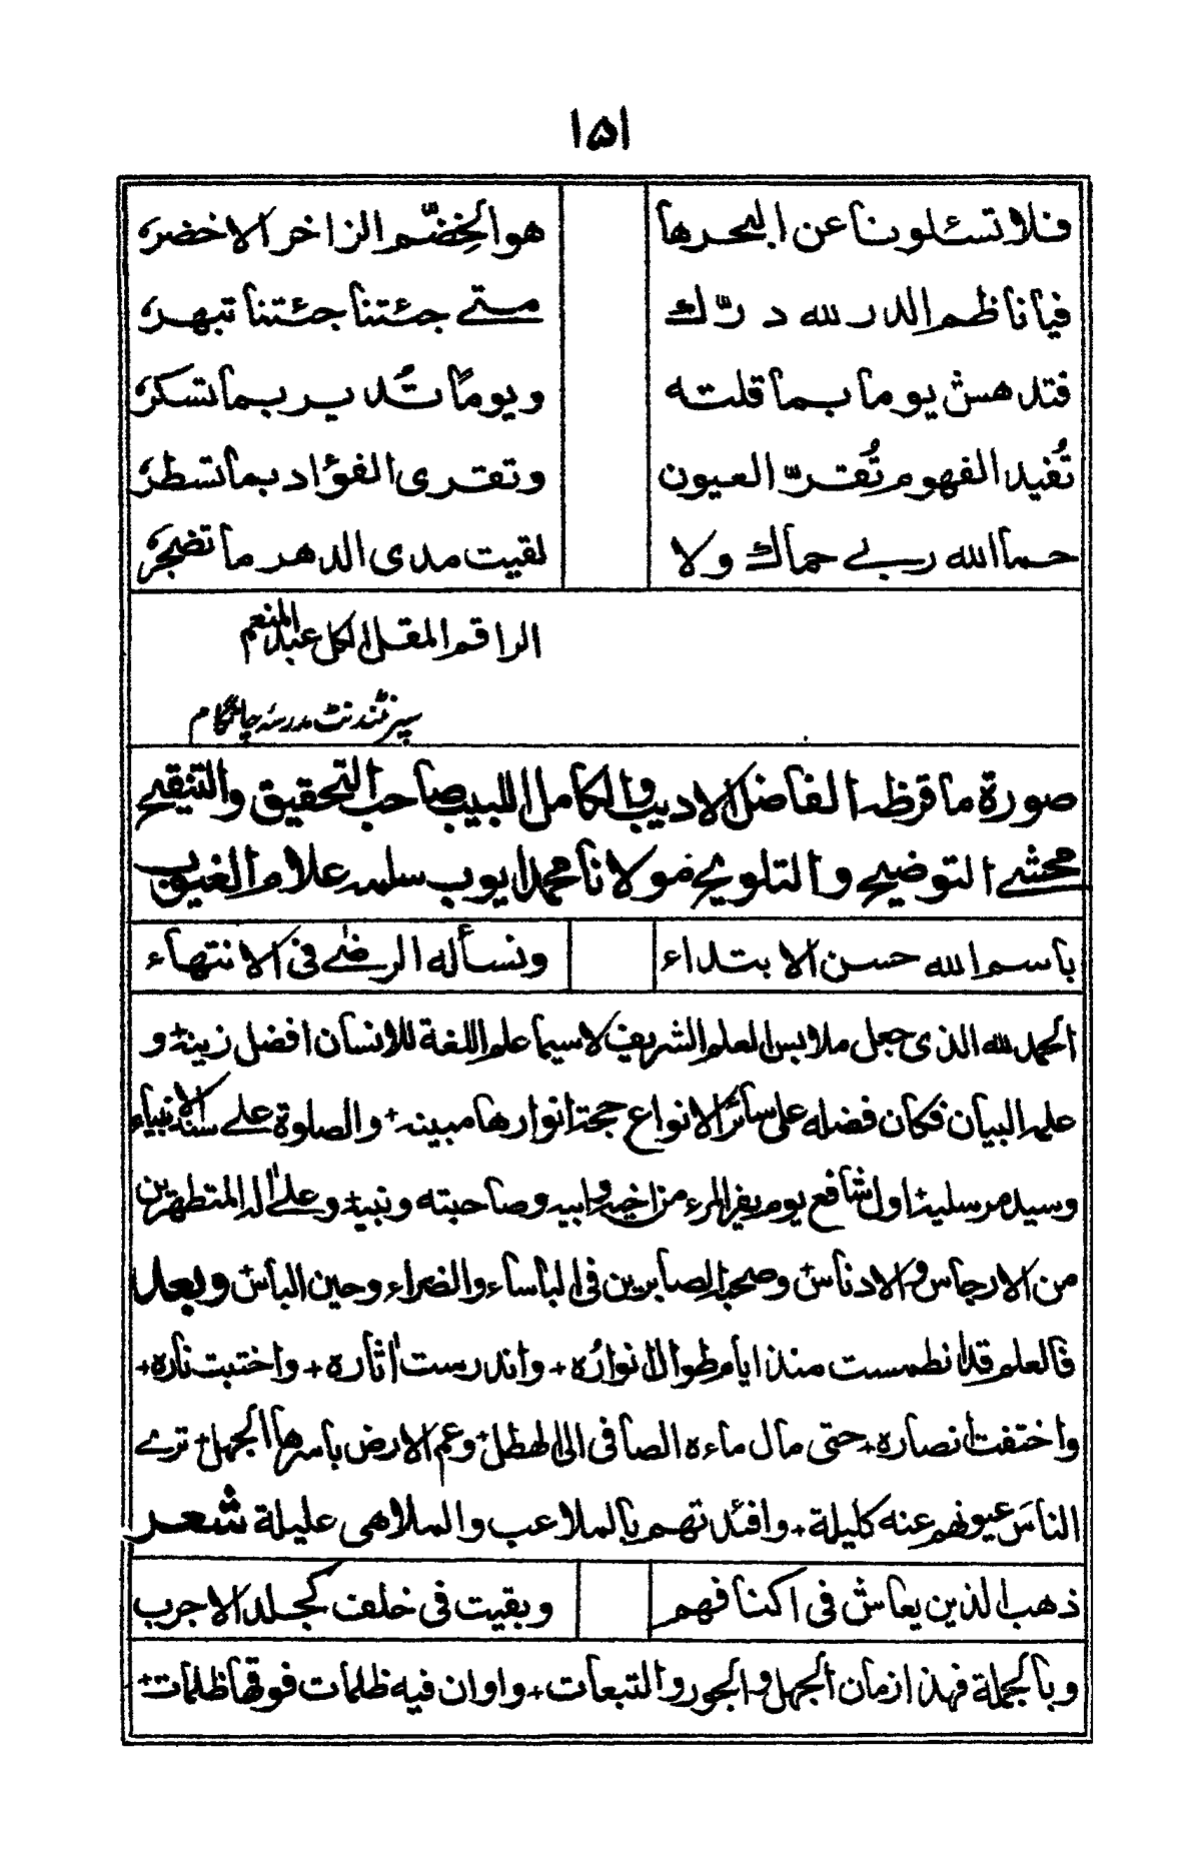 ۱۵۱
فلا تسئلونا عن البحرها هو الخِضَّم الزاخر الاخضرُ
فيا ناظم الدر لله درّك متے جئتنا جئتنا تبهرُ
فتدهش يوما بما قلته ويوماً تُدير بما تسكرُ
تُفيد الفهوم تُقرّ العيون وتقرى الفؤاد بما تسطرُ
حماالله ربے حماك ولا لقيت مدى الدهر ما تضجرُ
الراقم المقل الكل عبد المنعم
سپرنٹنڈنٹ مدرسہ چاٹگام
صورة ما قرظه الفاضل الاديب والكامل اللبيب صاحب التحقيق والتنقيح
محشے التوضيح والتلويح مولانا محمد ايوب سلمه علام الغيوب
باسم الله حسن الابتداء ونسأله الرضٰے فى الانتهاء
الحمد لله الذى جعل ملابس العلم الشريف لاسيما علم اللغة للانسان افضل زينة+ و
علمه البيان فكان فضله على سائر الانواع حجة انوارها مبينه+ والصلوة علے سند الانبياء
وسيد مرسليه+ اول شافع يوم يفر المرء من اخيه وابيه وصاحبته وبنيه+ وعلےٰ اله المتطهرين
من الارجاس والادناس+ وصحبه الصابرين فى الباساء والضراء وحين الباس+ وبعد
فالعلم قد انطمست منذ ايام طوال انوارُه+ واندرست اٰثاره+ واختبت ناره+
واختفت انصاره+ حتى مال ماءه الصافى الى الهطل+ وعم الارض باسرها الجهل+ ترے
الناسَ عيونهم عنه كليلة+ وافئدتهم بالملاعب والملاهى عليلة شعر
ذهب الذين يعاش فى اكنافهم وبقيت فى خلف كجلد الاجرب
وبالجملة فهذا زمان الجهل والجور والتبعات+ واوان فيه ظلمات فوقها ظلمات+